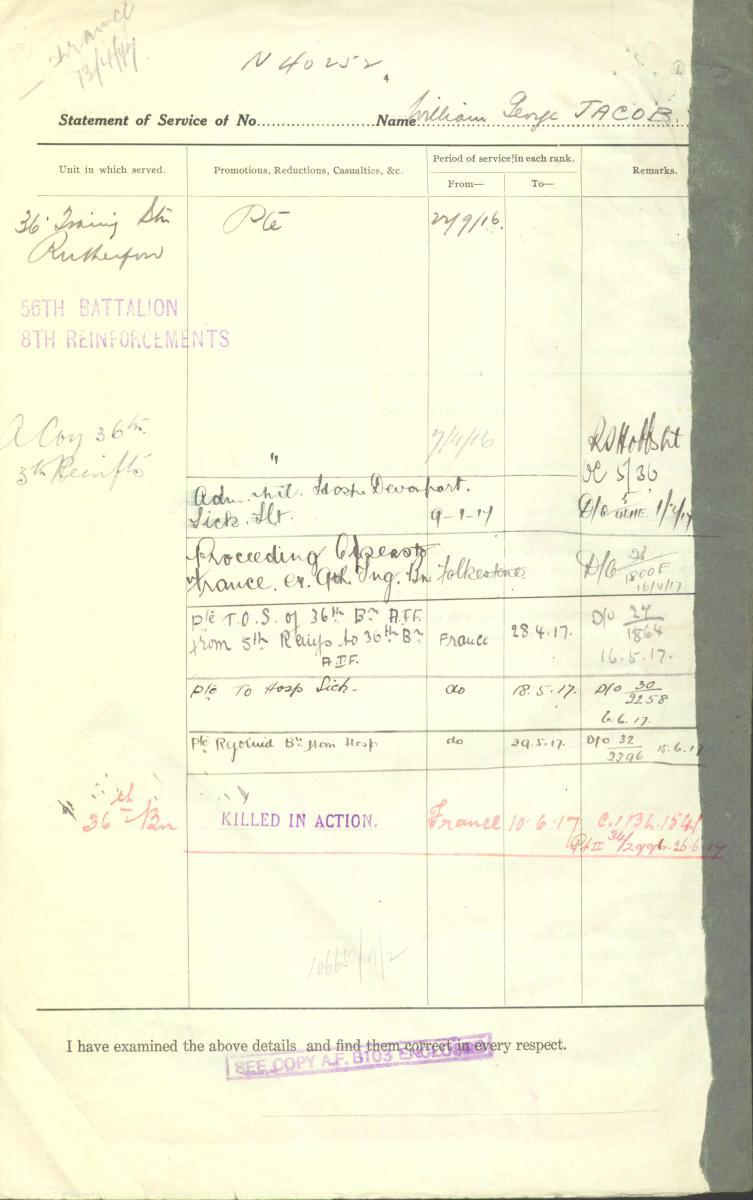 France
13/4/17.
N 40252
Statement of Service of No. Name William George JACOB.
Unit in which served. Promotions, Reductions, Casualties, &c. Period of service in each rank. Remarks.
From— To—
36 Training Btn Pte 22/9/16.
Rutherford
56TH BATTALION
8TH REINFORCEMENTS
A Coy 36th. 7/11/16
5th Reinfts " OC 5/36
Adm. Mil. Hosp. Devonport.
Sick. 9-1-17 D/O
Proceeding O'seas to
France. ex. 9th Tng. Bn Folkestone D/O 26/1800F
16/4/17.
Pte T.O.S. of 36th Bn A.I.F. 28.4.17. D/O 27/1864
from 5th Reinfs to 36th Bn France
A.I.F. 16.5.17.
Pte To Hosp Sick- do 18.5.17. D/O 30/2258
6.6.17.
Pte Rejoined Bn from Hosp do 29.5.17. D/O 32/2296 15.6.17
36th Bn KILLED IN ACTION. France 10.6.17
Pt II 34/ 26.6.17
10665/9/2
I have examined the above details and find them correct in every respect.
SEE COPY A.F. B103 ENCLOSED